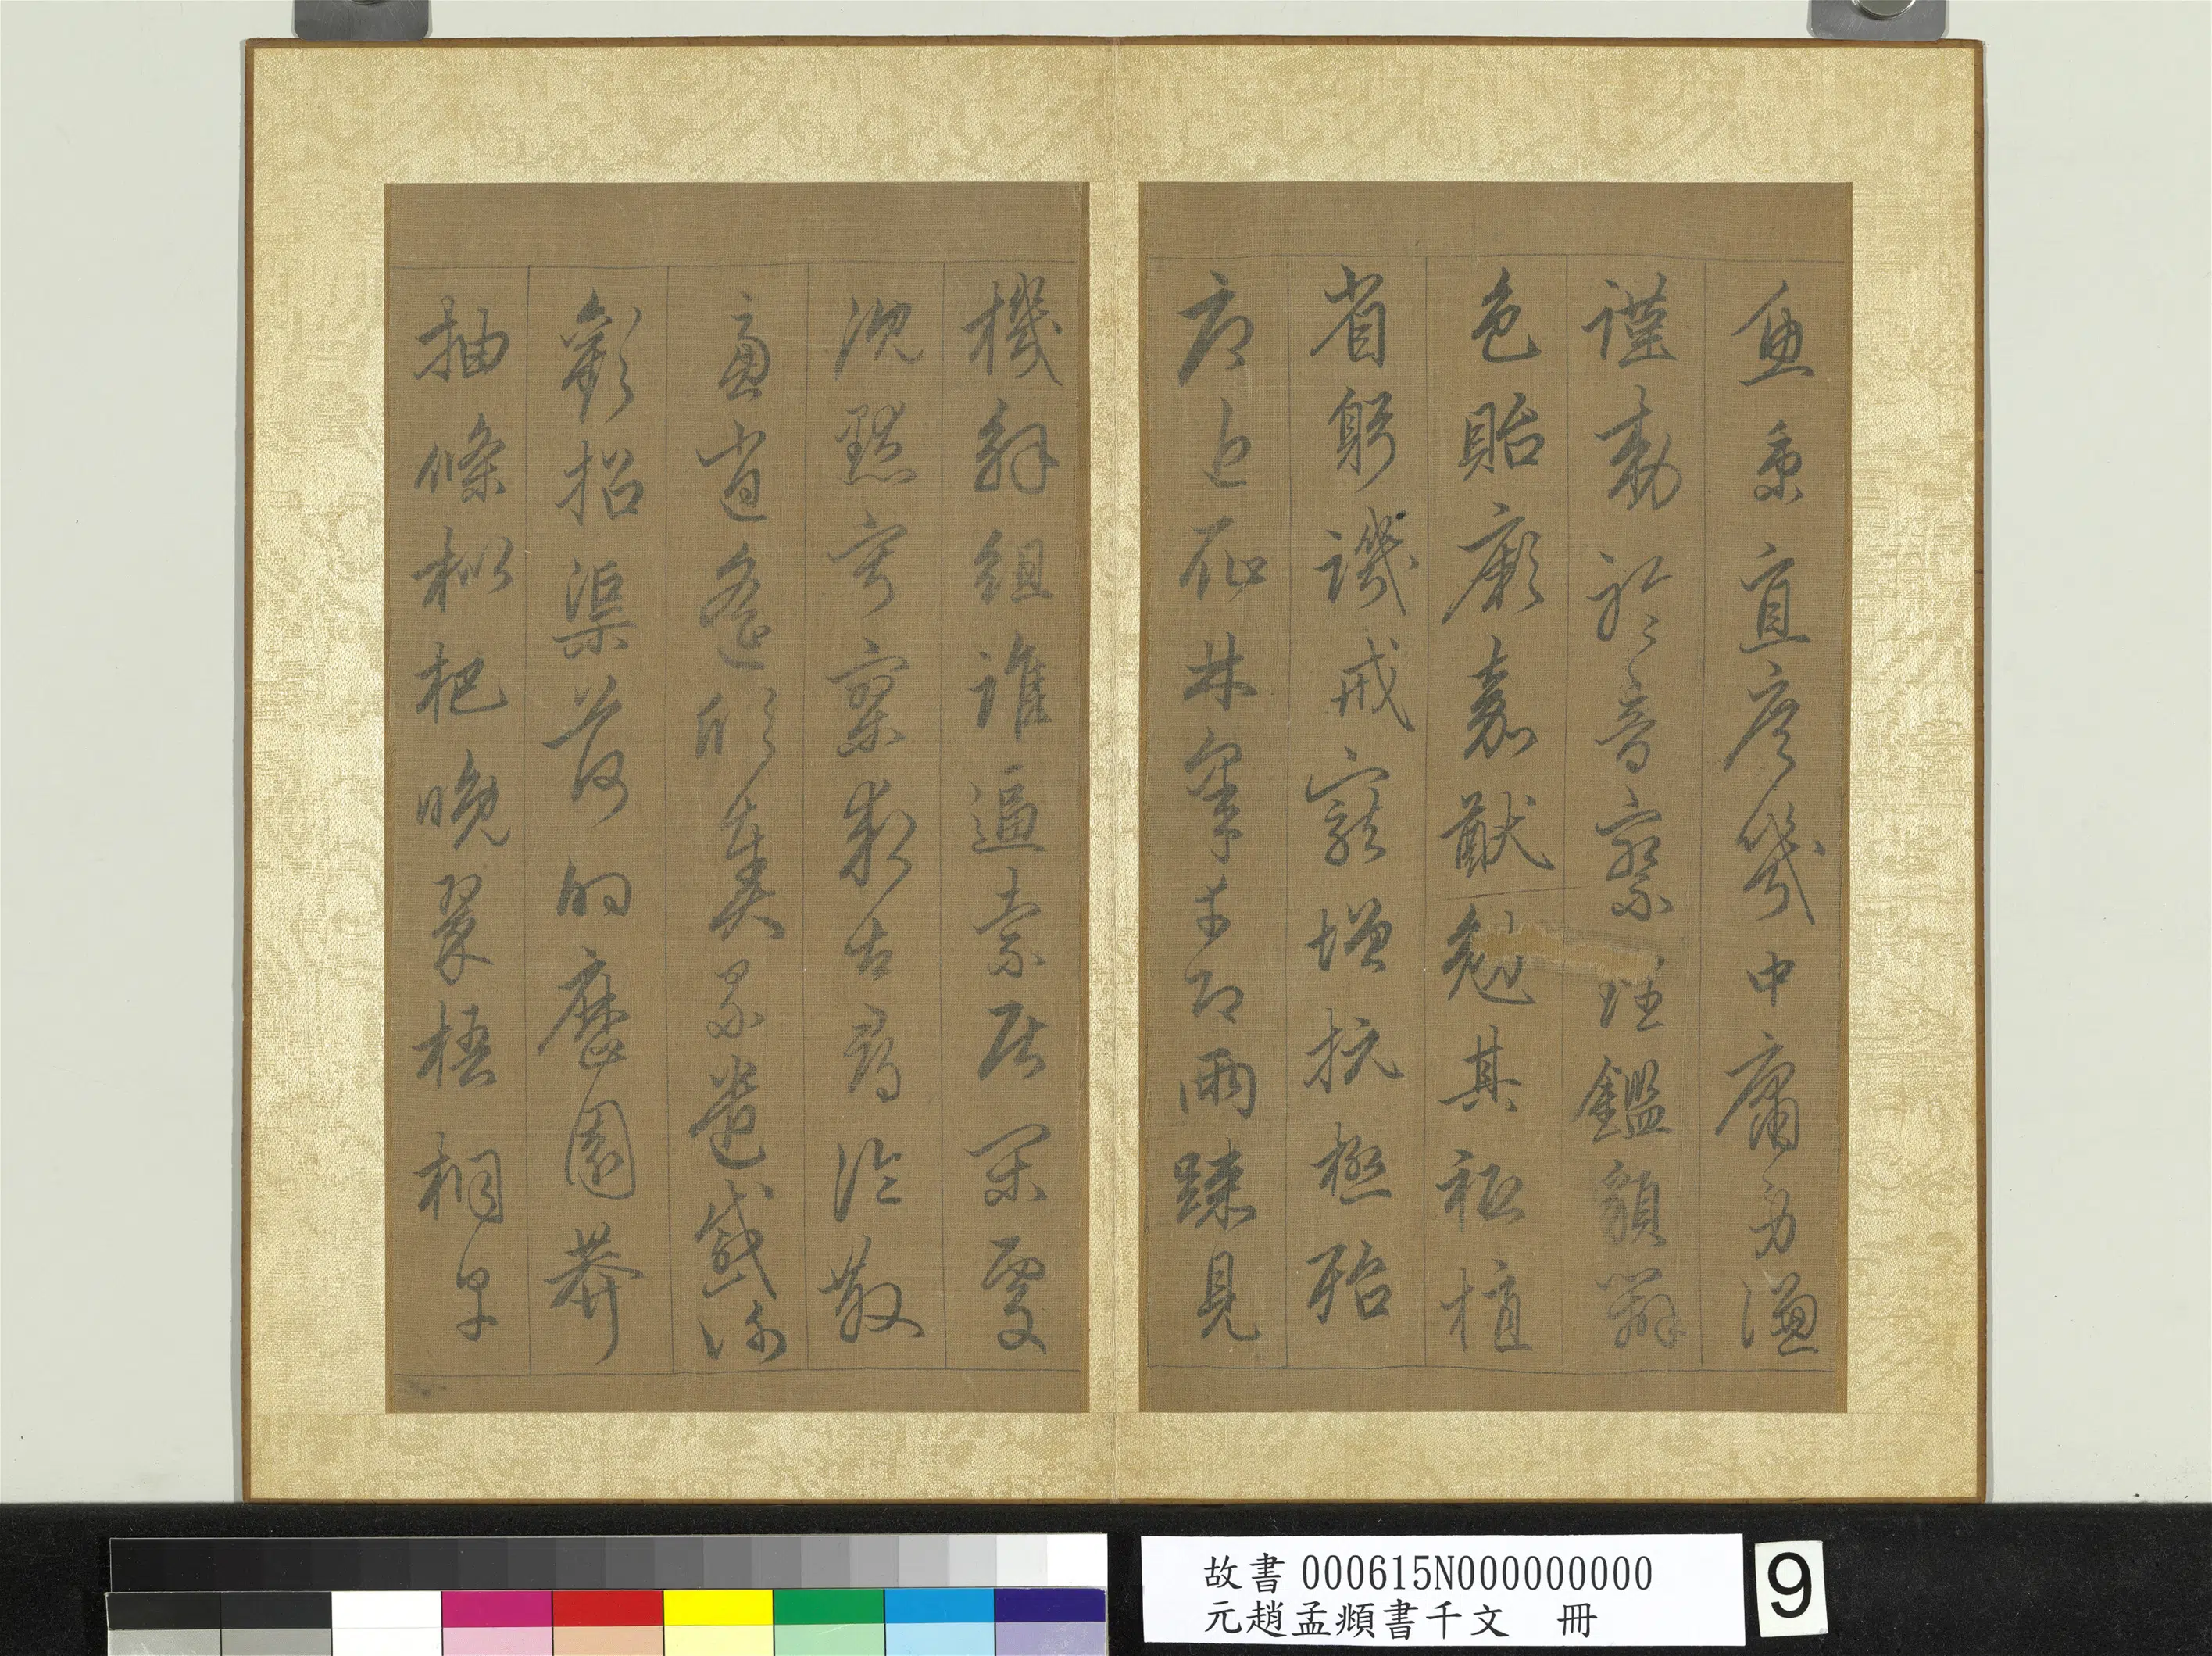 魚秉直庶幾中庸勞謙
謹勅聆音察理鑑貌辨
色貽厥嘉猷勉其祗植
省躬譏戒寵增抗極殆
辱近恥林皋幸即兩疎見
機解組誰逼索居閑處
沈默寂寥求古尋論散
慮逍遙欣奏累遣慼謝
歡招渠荷的歷園莽
抽條枇杷晚翠梧桐早
故書 000615N000000000
元趙孟頫書千文 冊
9